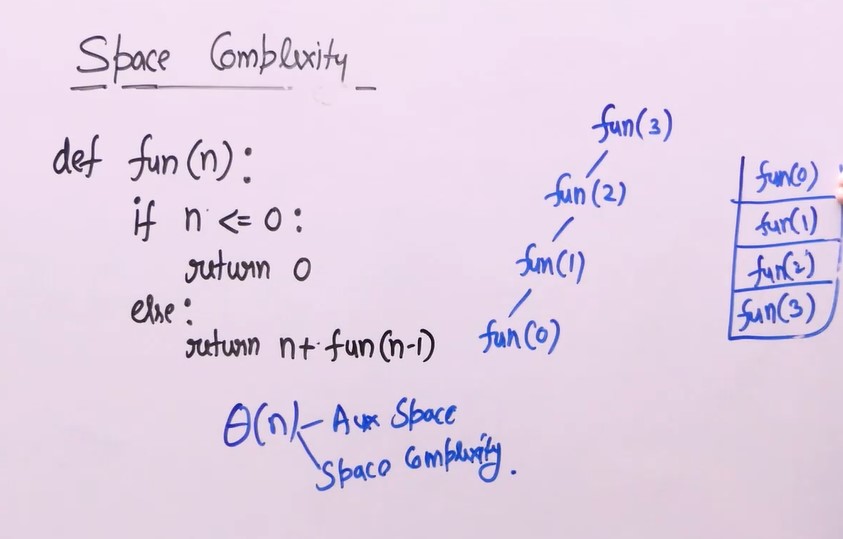 Space Complexity
def fun(n):
if n <= 0:
return 0
else:
return n+fun(n-1)
fun(3)
fun(2)
fun(1)
fun(0)
fun(0)
fun(1)
fun(2)
fun(3)
Θ(n) - Aux Space
Space Complexity.